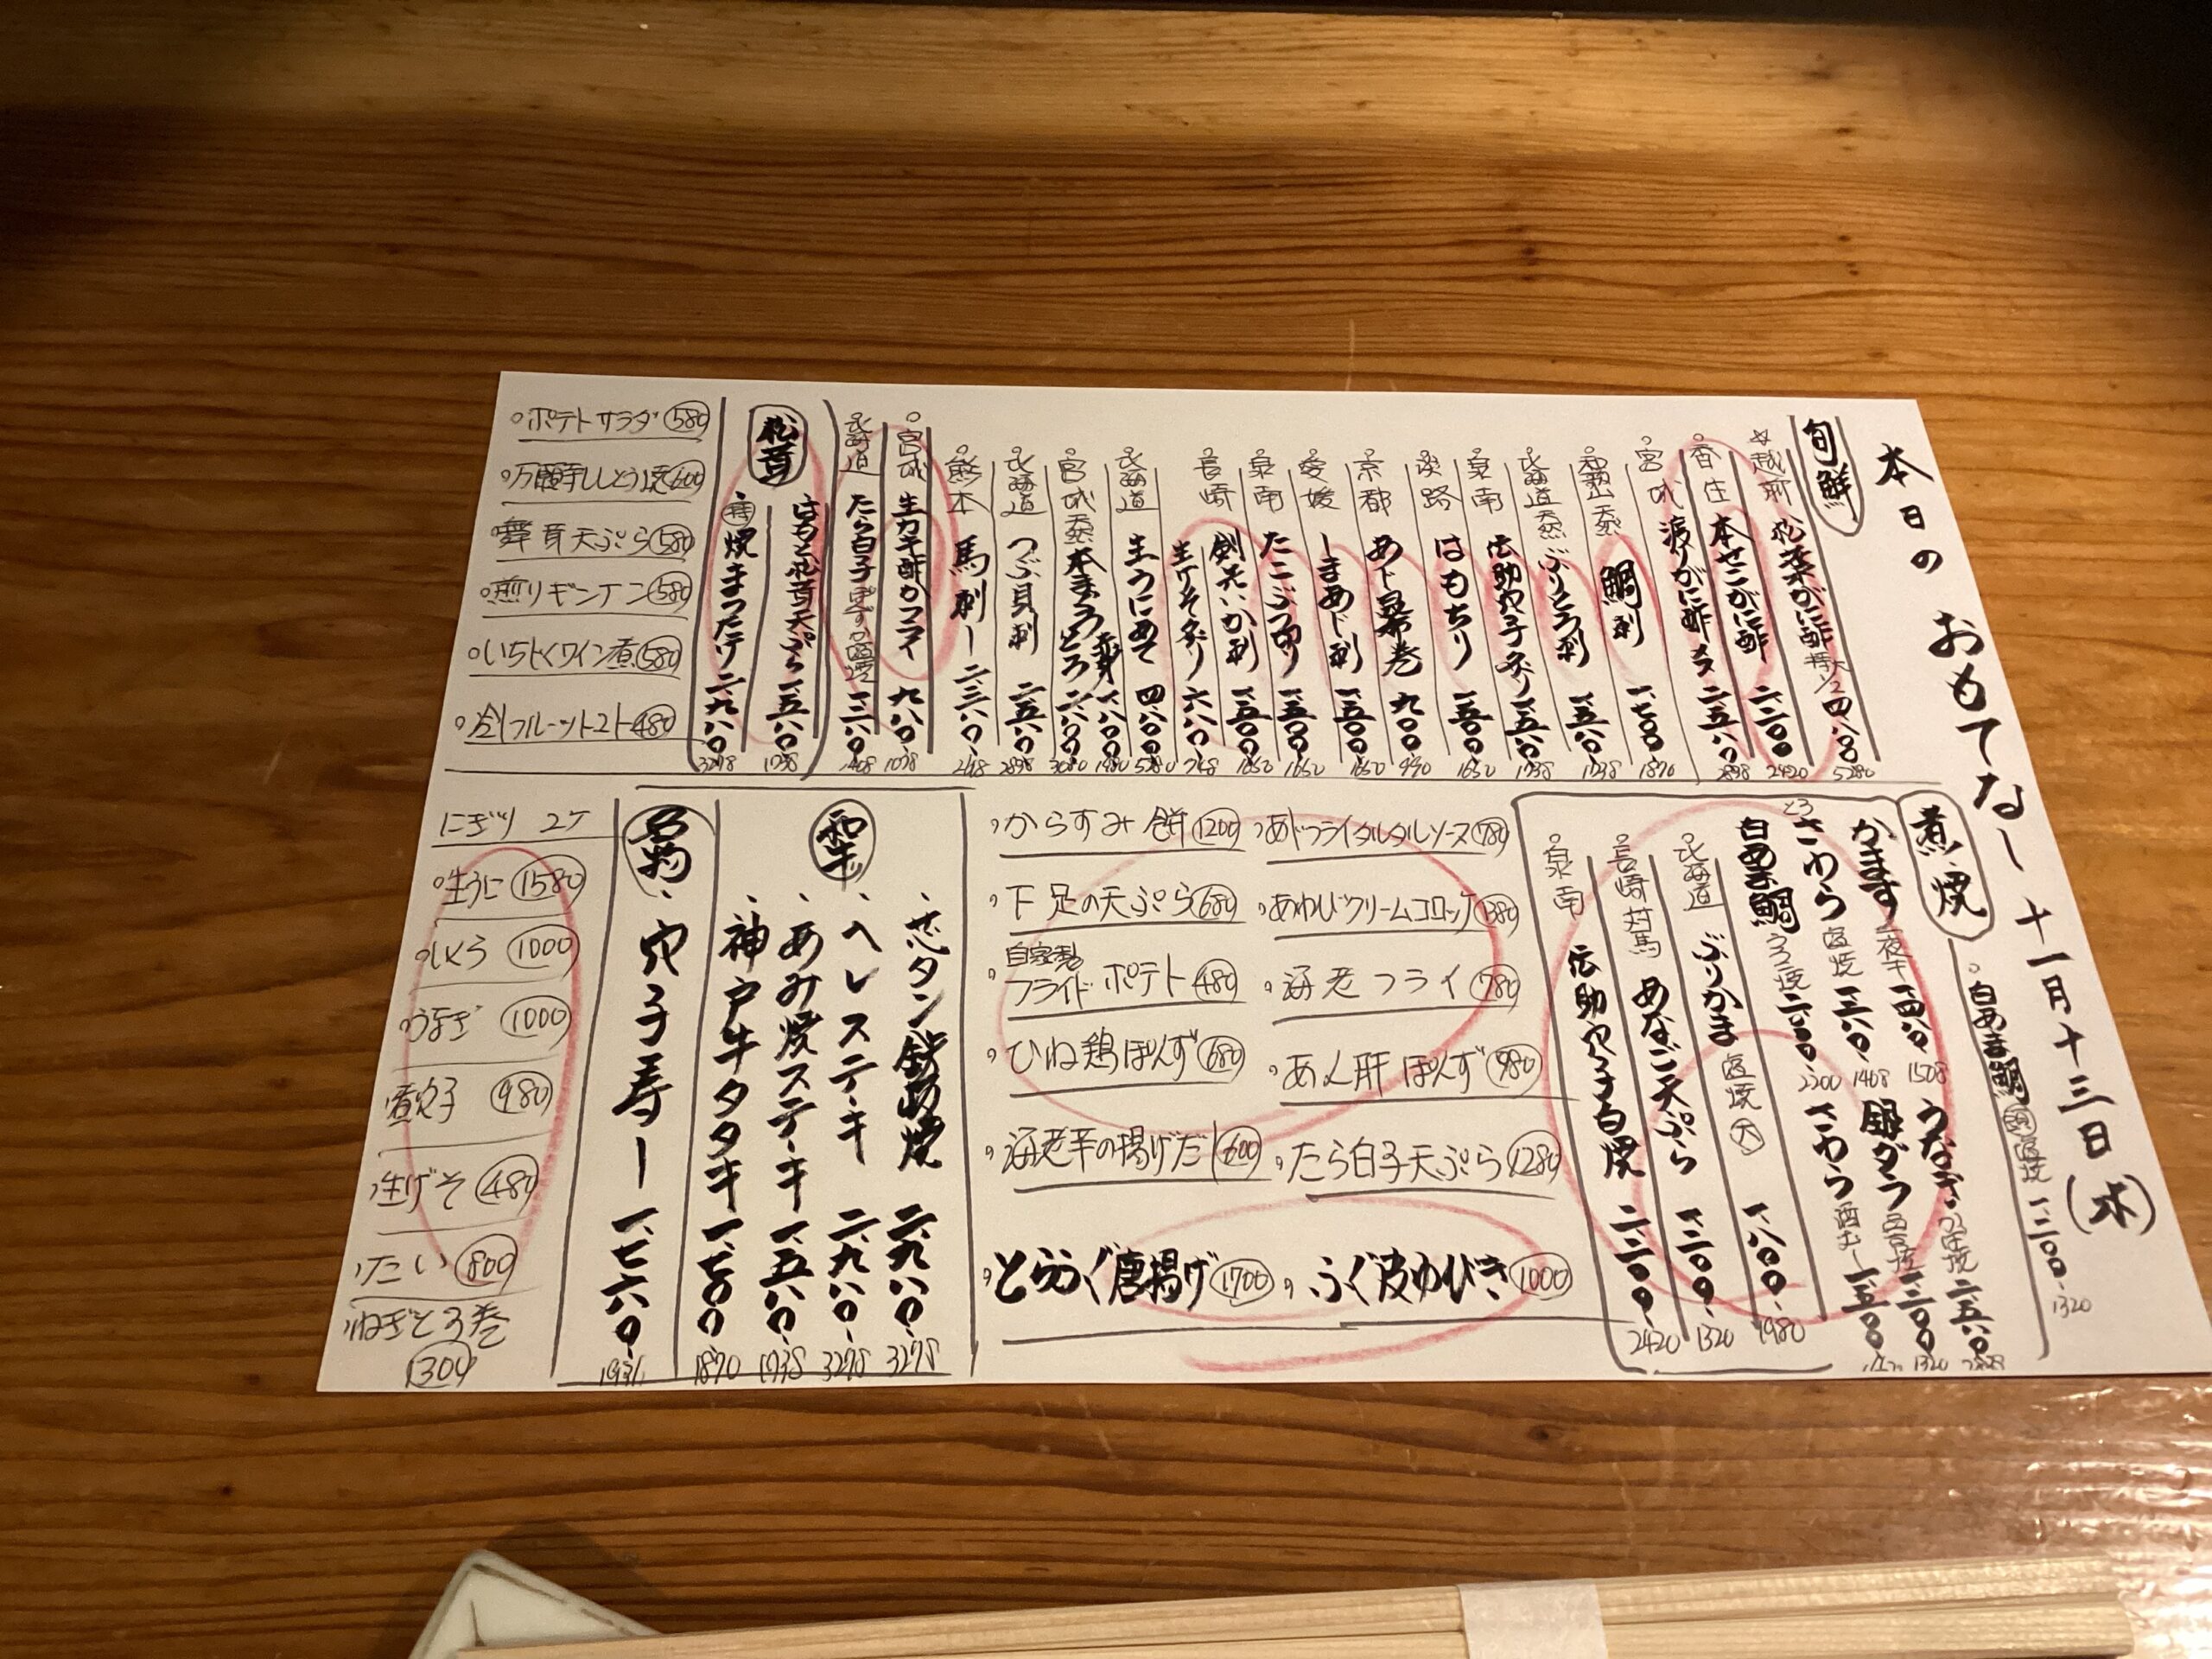 本日のおもてなし 十一月十三日(水)
旬鮮
☆越前 松葉がに酢 特大 1/2 四、八〇〇 5280
香住 本せこがに酢 二、二〇〇 2420
宮城 渡りがに酢 二、五八〇
宮城 鯛刺 一、七〇〇 1870
和歌山 天然
北海道 天然 ぶりとろ刺 一、五八〇 1738
泉南 伝助穴子炙り 一、五八〇 1738
淡路 はもちり 一、五〇〇 1650
京都 あじ昆布巻 九〇〇 990
愛媛 しまあじ刺 一、五〇〇 1650
泉南 たこぶつ切り 一、五〇〇 1650
長崎 剣先いか刺 一、五〇〇 1650
生げそ炙り 六八〇 748
北海道 生うにあて 四、八〇〇 5280
宮城 天然 本まぐろ 赤身 一、八〇〇 1980
とろ 二、八〇〇 3080
北海道 つぶ貝刺
熊本 馬刺し
宮城 生カキ酢かフライ 九八〇 1078
北海道 たら白子 ぽんずか塩焼
松茸
はもと松茸天ぷら 一、五八〇 1738
焼まつたけ 二、九八〇 3278
ポテトサラダ 580
万願寺ししとう焼 600
舞茸天ぷら 580
煎りギンナン 580
いちじくワイン煮 580
フルーツトマト 480
煮・焼
白あま鯛 塩焼 一、二〇〇 1320
かます 一夜干
うなぎ
さわら 塩焼
銀ダラ 一、二〇〇 1320
白あま鯛 うろこ焼 二、〇〇〇 2200
さわら 酒むし 一、五〇〇
北海道 ぶりかま 塩焼 大 一、八〇〇 1980
長崎 対馬 あなご天ぷら 一、二〇〇 1320
泉南 伝助穴子白焼 二、二〇〇 2420
からすみ餅 1200
あじフライタルタルソース 780
下足の天ぷら 680
あわびクリームコロッケ 1380
自家製
フライドポテト 480
海老フライ 780
ひね鶏ぽんず 680
あん肝ぽんず 980
海老芋の揚げだし 600
たら白子天ぷら 1280
とらふぐ唐揚げ 1700
ふぐ皮ゆびき 1000
和牛
芯タン鉄板焼 二、九八〇 3278
ヘレステーキ 二、九八〇 3278
あみ焼ステーキ 一、五八〇 1738
神戸牛タタキ 一、七〇〇 1870
名物
穴子寿し 一、七六〇
にぎり 2ケ
生うに 1580
いくら 1000
うなぎ 1000
煮穴子 980
生げそ 480
たい 800
ねぎとろ巻
1300